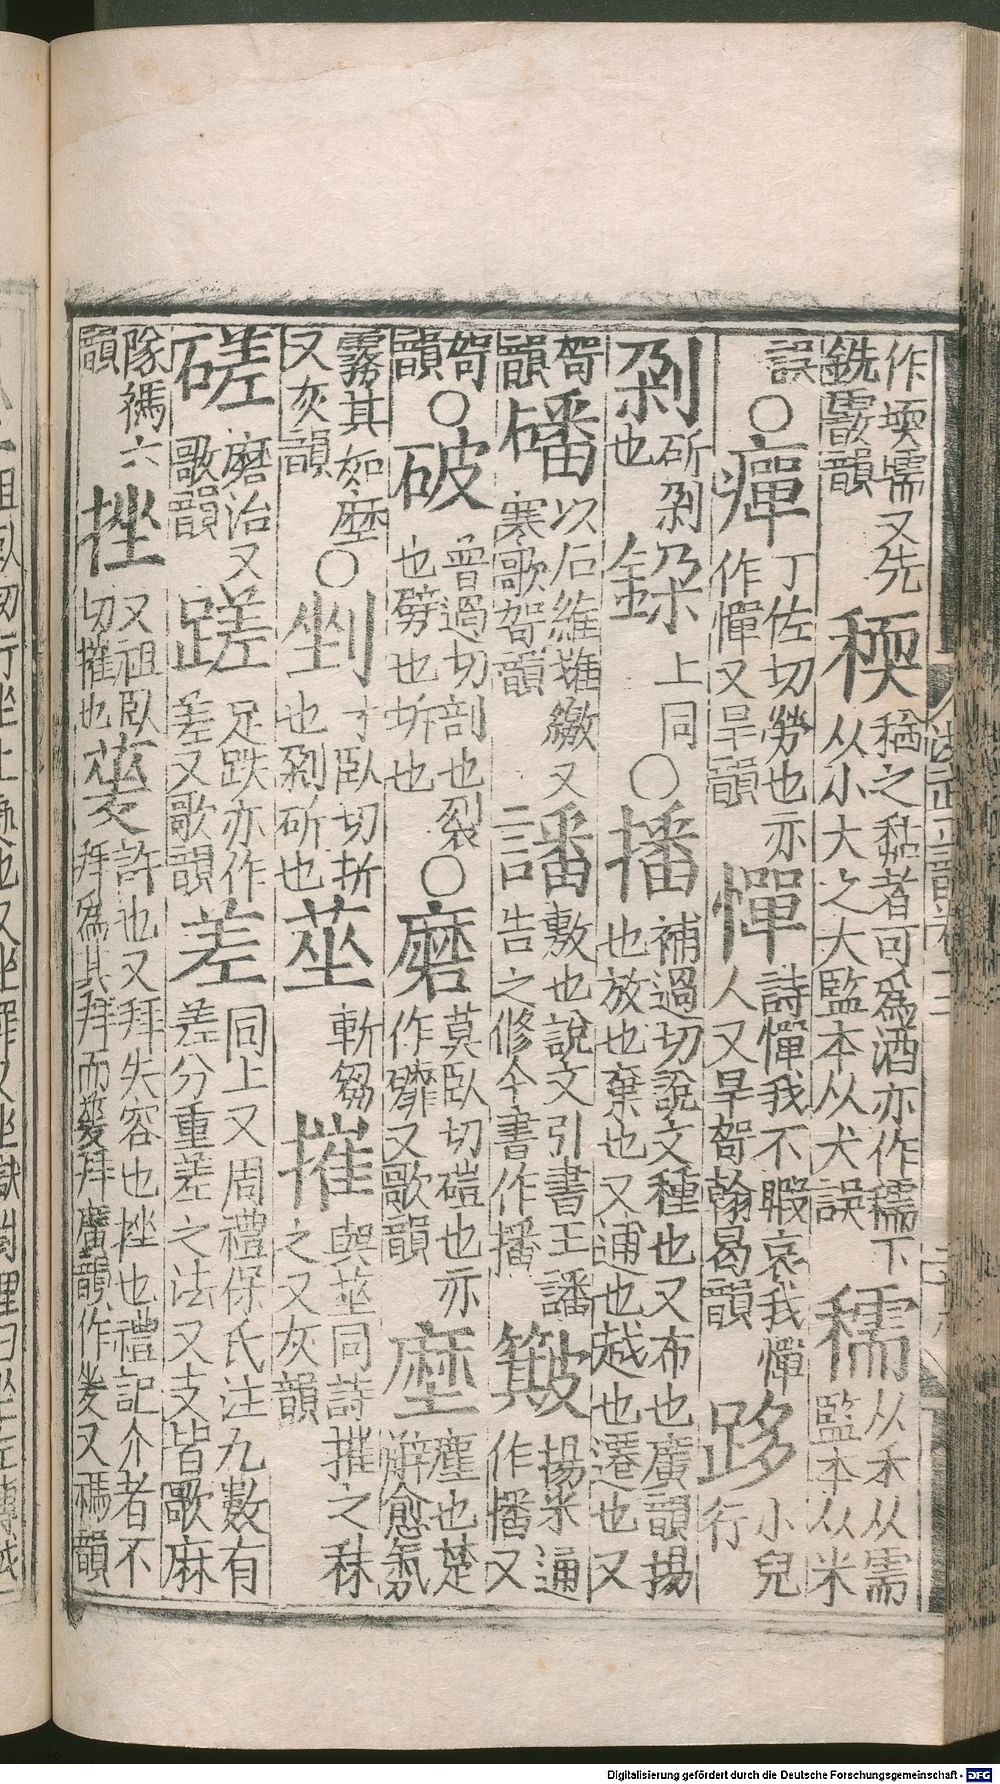 作堧需又先
銑霰韻
稬
稬之黏者可爲酒亦作穤下
从小大之大監本从犬誤
穤
从禾从需
監本从米
誤
○
癉
丁佐切勞也亦
作憚又旱韻
憚
詩憚我不暇哀我憚
人又旱哿翰曷韻
跢
小兒
行
剁
斫剁
也
鍒
上同
○
播
補過切說文種也又布也廣韻揚
也放也棄也又逋也越也遷也又
哿
韻
磻
以石維繳又
寒歌哿韻
譒
敷也說文引書王譒
告之修今書作播
簸
揚米
作播又
哿
韻
○
破
普過切剖也裂
也劈也坼也
○
磨
莫臥切磑也亦
作䃺又歌韻
塺
塵也楚
辭愈氛
霧其如塺
又灰韻
○
剉
寸臥切折
也剁斫也
莝
斬芻
摧
與莝同詩摧之秣
之又灰韻
磋
磨治又
歌韻
蹉
足跌亦作
差又歌韻
差
同上又周禮保氏注九數有
差分重差之法又支皆歌麻
隊禡六
韻
挫
又祖臥
切摧也
夎
詐也又拜失容也挫也禮記介者不
拜爲其拜而夎拜廣韻作夎又禡韻
Digitalisierung gefördert durch die Deutsche Forschungsgemeinschaft - DFG